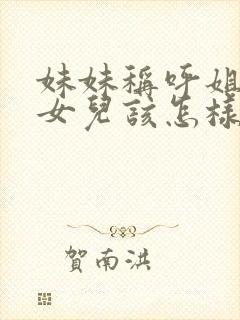 妹妹稱呼姐
女兒該怎樣
賀南洪